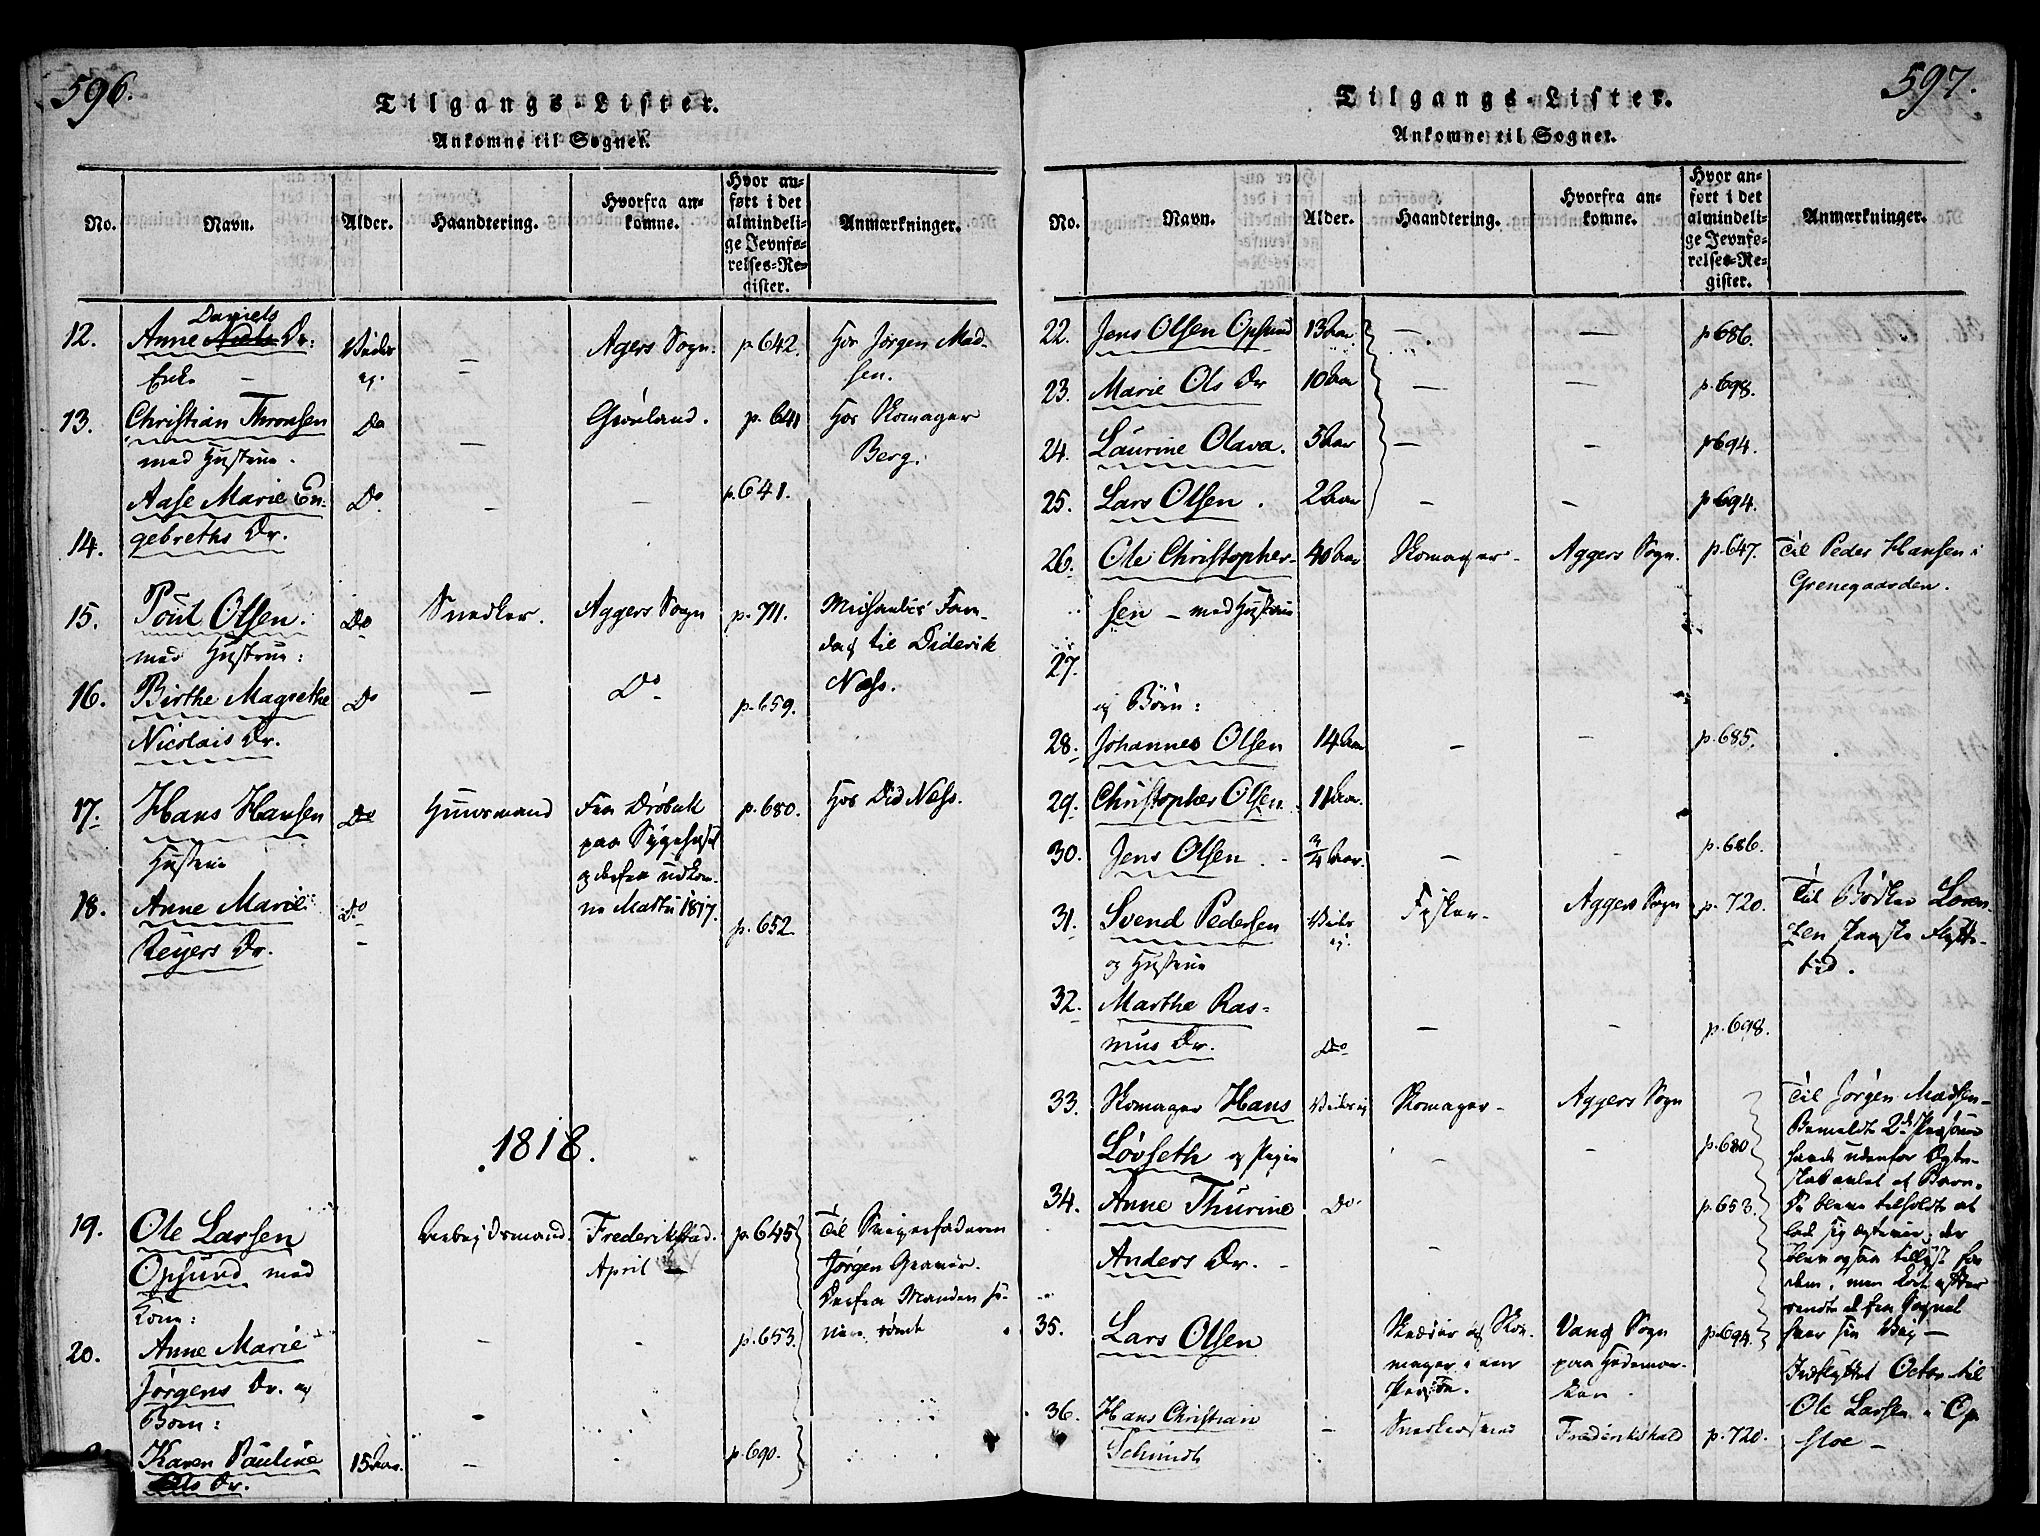 596.
Tilgangs-Lister.
Ankomne til Sognet.
No. Navn. Alder. Haandtering. Hvorfra ankomne. Hvor anført i det almindelige Jevnførelses-Register. Anmærkninger.
12. Anne Daniels Dr: — Agers Sogn. p. 642. Hos Jørgen Mad-
Enke — sen.
13. Christian Thronsen Do — Grønland. p. 641 Hos Skomager
med Hustrue. Berg.
Aase Marie En- Do — — p. 641.
14. gebreths Dr.
15. Poul Olsen. Do Snedker. Aggers Sogn p. 711.
med Hustrue: til Diderik
16. Birthe Magrethe Do — Do p. 659. Næss.
Nicolais Dr.
17. Hans Hansen Do Huusmand Fra Drøbak p. 680. Hos Did Næss.
Hustrue paa Sygehuset
og derfra udkom-
18. Anne Marie Do ne Martii 1817. p. 652.
Reyers Dr. —
1818.
19. Ole Larsen Arbejdsmand. Frederikstad. p. 645 Til Svigerfaderen
Opsund med April Jørgen
Kone: Derfra Manden si-
20. Anne Marie — — p. 653. den rømt
Jørgens Dr. og
Børn:
Karen Pauline 15 Aar. — p. 690.
Ols Dr.
597.
Tilgangs-Lister.
Ankomne til Sognet.
No. Navn. Alder. Haandtering. Hvorfra ankomne. Hvor anført i det almindelige Jevnførelses-Register. Anmærkninger.
22. Jens Olsen Opsund 13 Aar — — p. 686.
23. Marie Ols Dr 10 Aar — — p. 698.
24. Laurine Olava. 5 Aar — — p. 694.
25. Lars Olsen. 2 Aar — — p. 694.
26. Ole Christopher- 40 Aar Skomager Aggers Sogn. p. 647. Til Peder Hansen i
Grenegaarden.
sen — med Hustrue
27.
og Børn:
28. Johannes Olsen 14 Aar — — p. 685.
29. Christopher Olsen 11 Aar.
30. Jens Olsen. 3/4 Aar. — — p. 686.
31. Svend Pedersen Fisker Aggers Sogn p. 720. Til Bødker Loren-
og Hustrue tzen Flytte-
tid.
32. Marthe Ras-
mus Dr. Do — — p. 698.
33. Skomager Hans Skomager Aggers Sogn Til Jørgen Madsen
Løvseth og Pigen — — p. 680
34. Anne Thurine Do. p. 653.
Anders Dr. —
35. Lars Olsen Skræder og Sko- Vang Sogn p. 694
mager i een paa Hedemar-
Person. ken. Indflyttet Octor til
36. Hans Christian — Snedkersvend Frederikshald p. 720. Ole Larsen i Op-
Schmidt sloe —